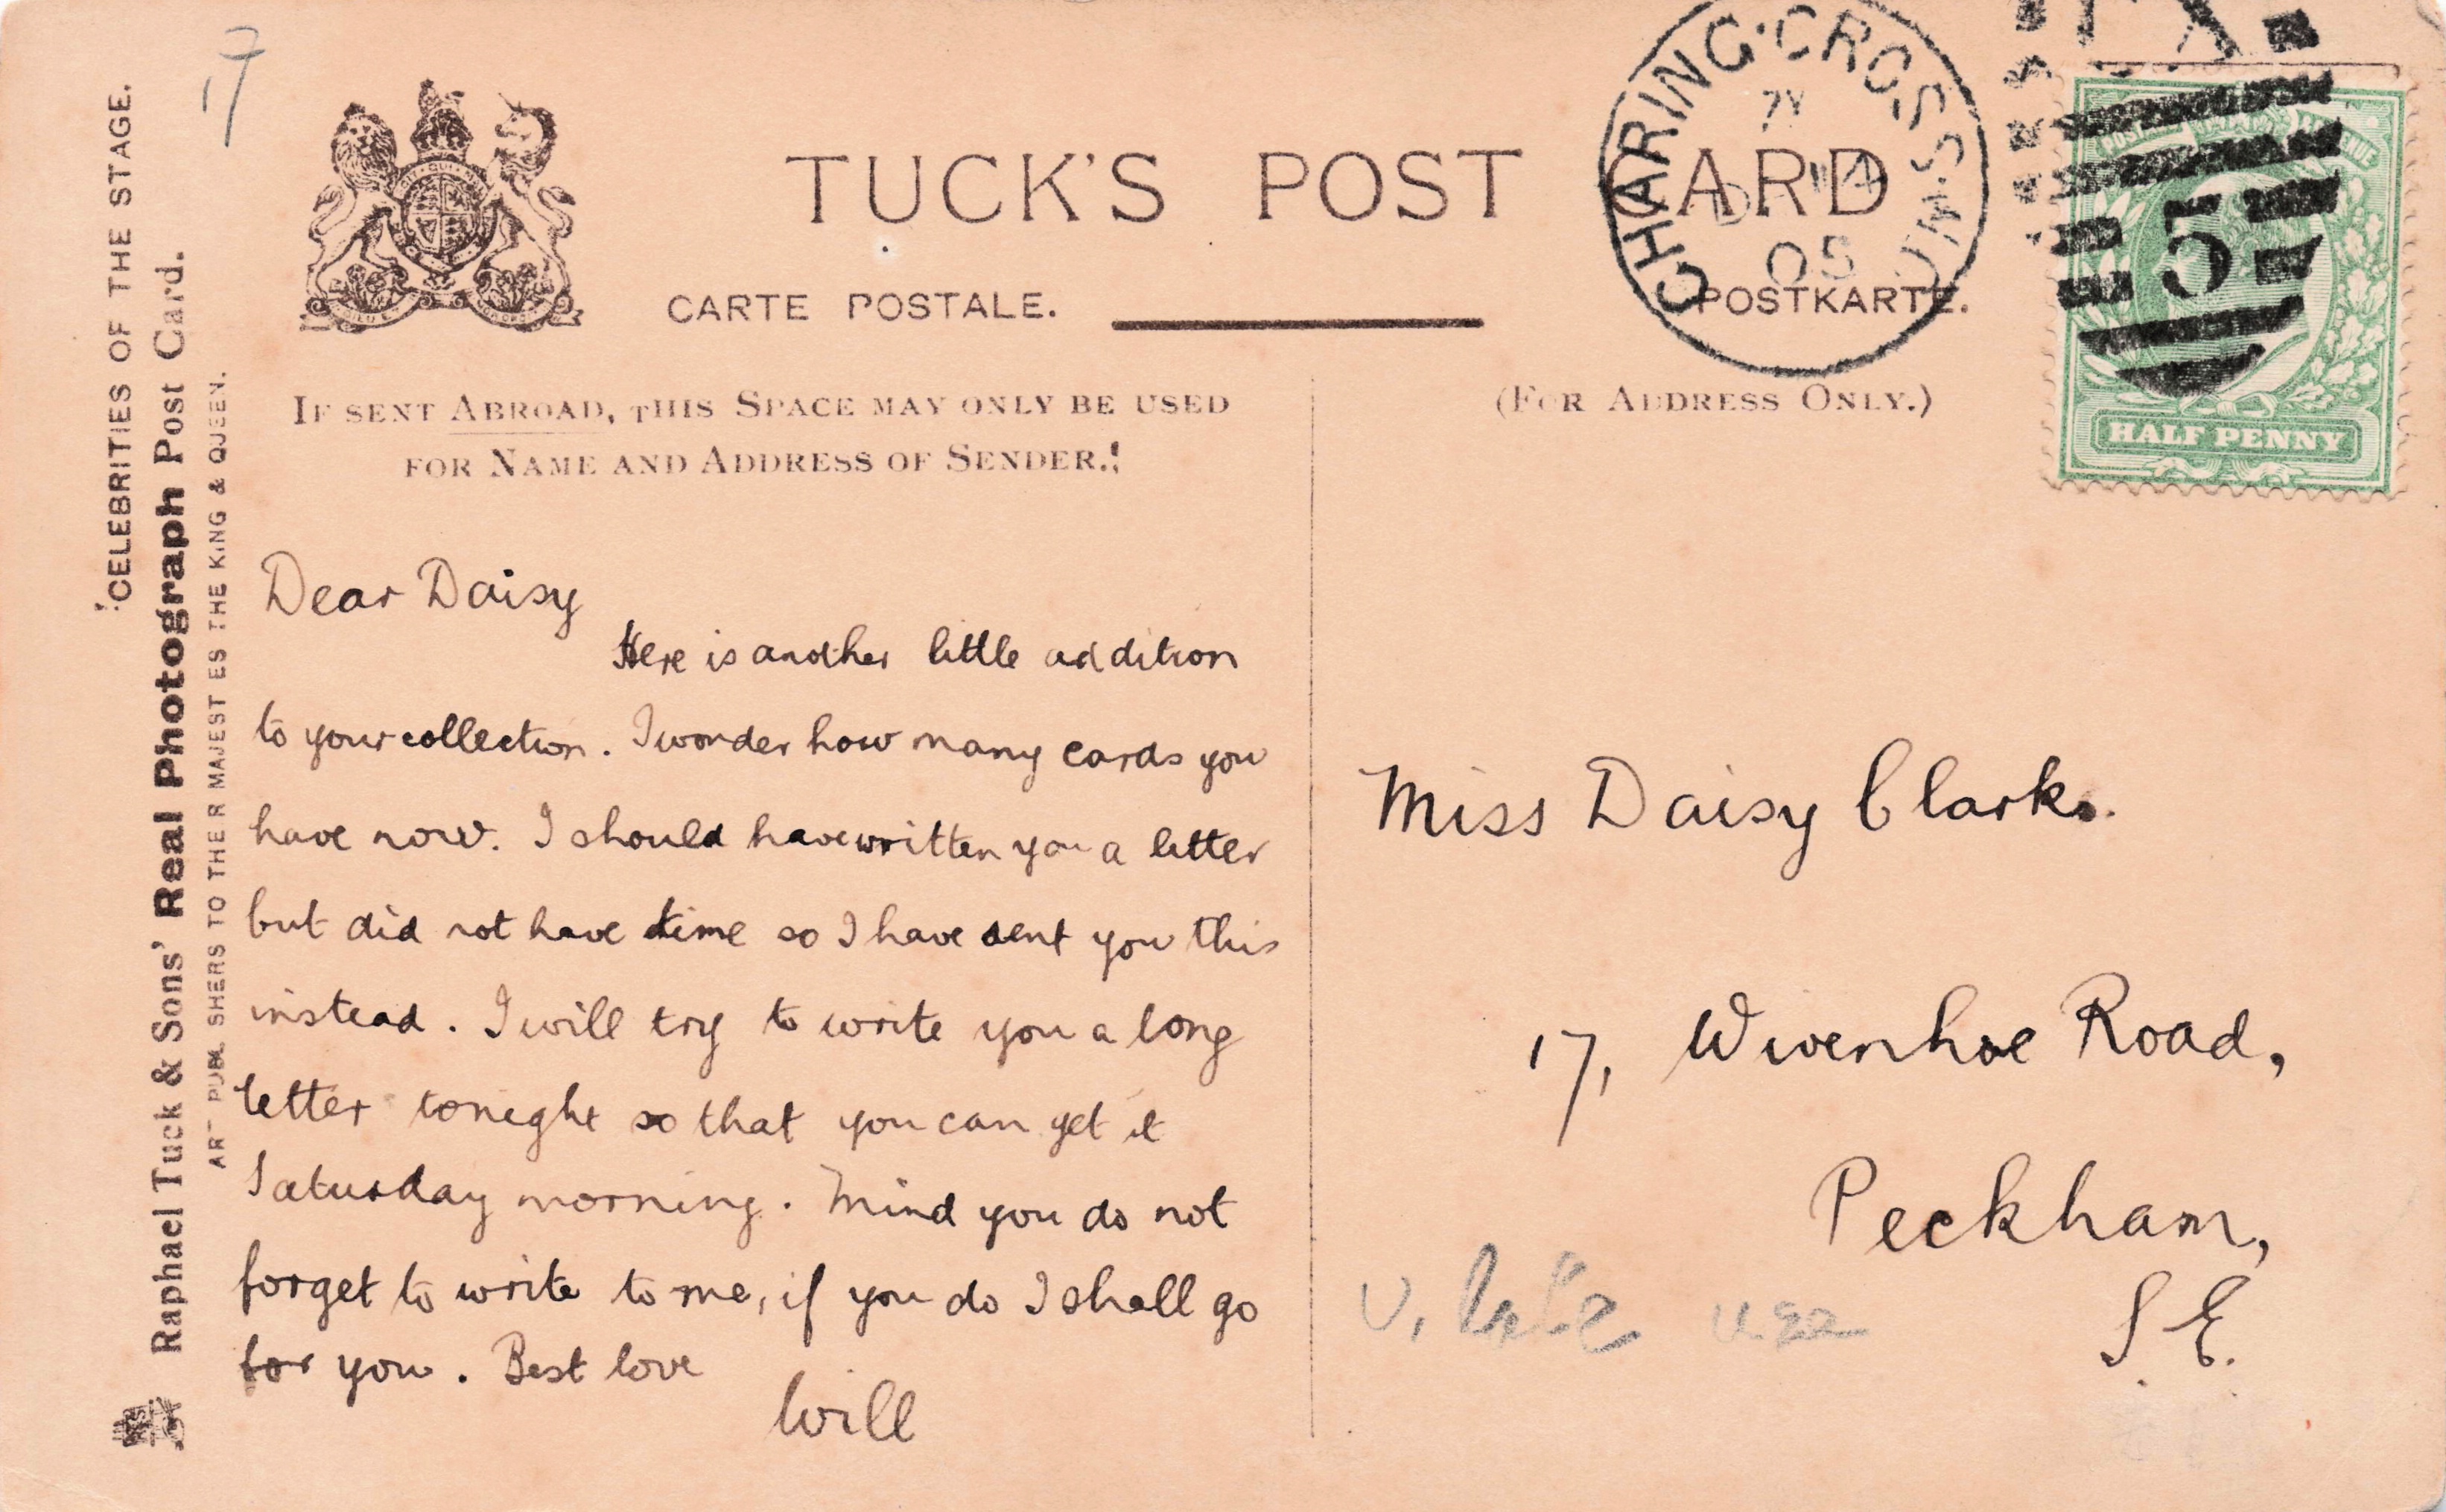 17
TUCK'S POST CARD
CARTE POSTALE.
POSTKARTE.
CHARING·CROSS
05
5
HALF PENNY
IF SENT ABROAD, THIS SPACE MAY ONLY BE USED
FOR NAME AND ADDRESS OF SENDER.
(FOR ADDRESS ONLY.)
"CELEBRITIES OF THE STAGE.
Raphael Tuck & Sons' Real Photograph Post Card.
ART PUBLISHERS TO THEIR MAJESTIES THE KING & QUEEN.
Dear Daisy
Here is another little addition
to your collection. I wonder how many cards you
have now. I should have written you a letter
but did not have time so I have sent you this
instead. I will try to write you a long
letter tonight so that you can get it
Saturday morning. Mind you do not
forget to write to me, if you do I shall go
for you. Best love
Will
Miss Daisy Clark.
17, Wivenhoe Road,
Peckham,
S.E.